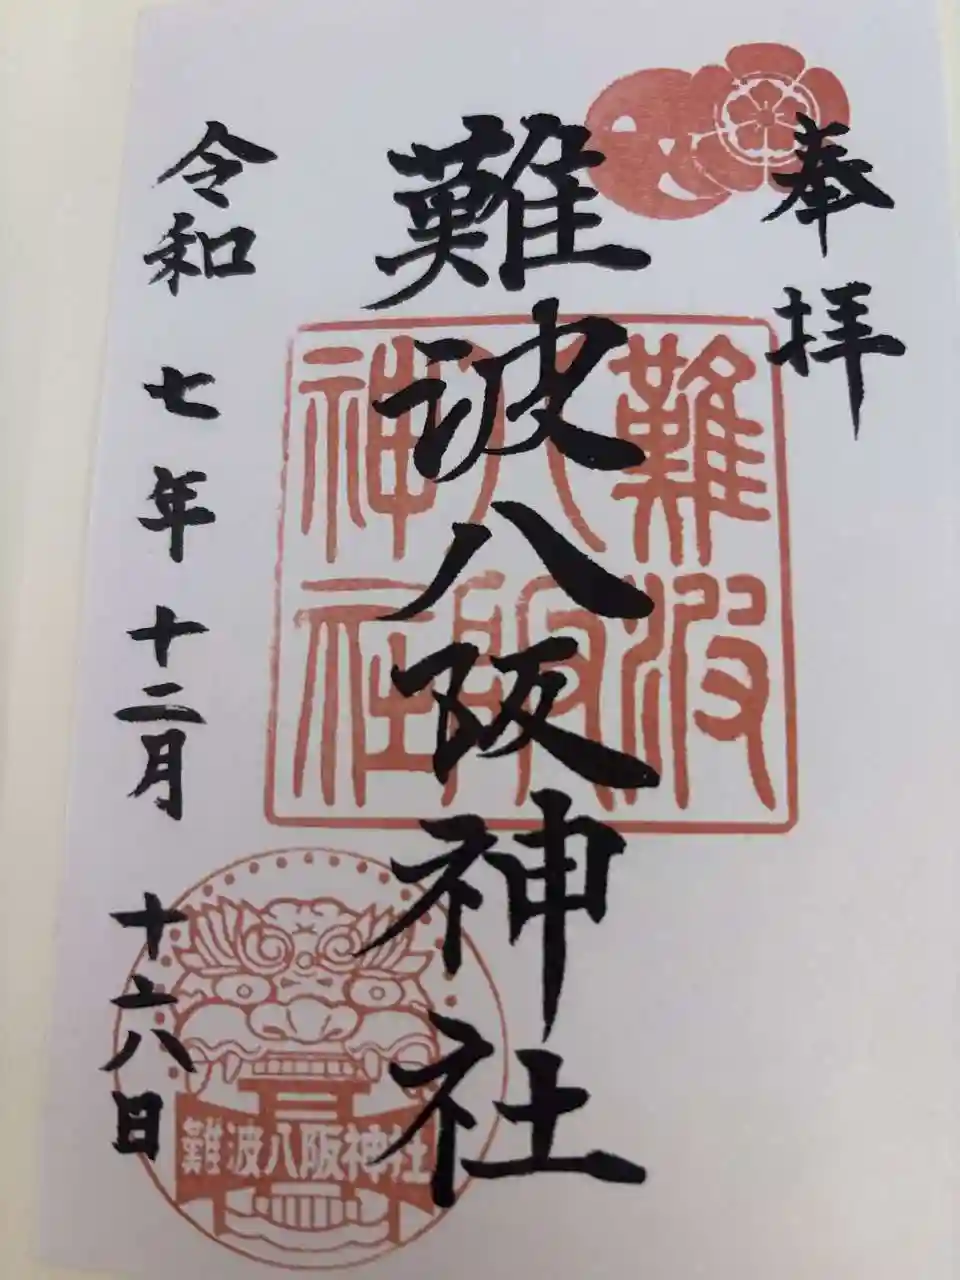 奉拝
難波八阪神社
令和 七年 十二月 十六日
難波
八阪
神社
難波八阪神社